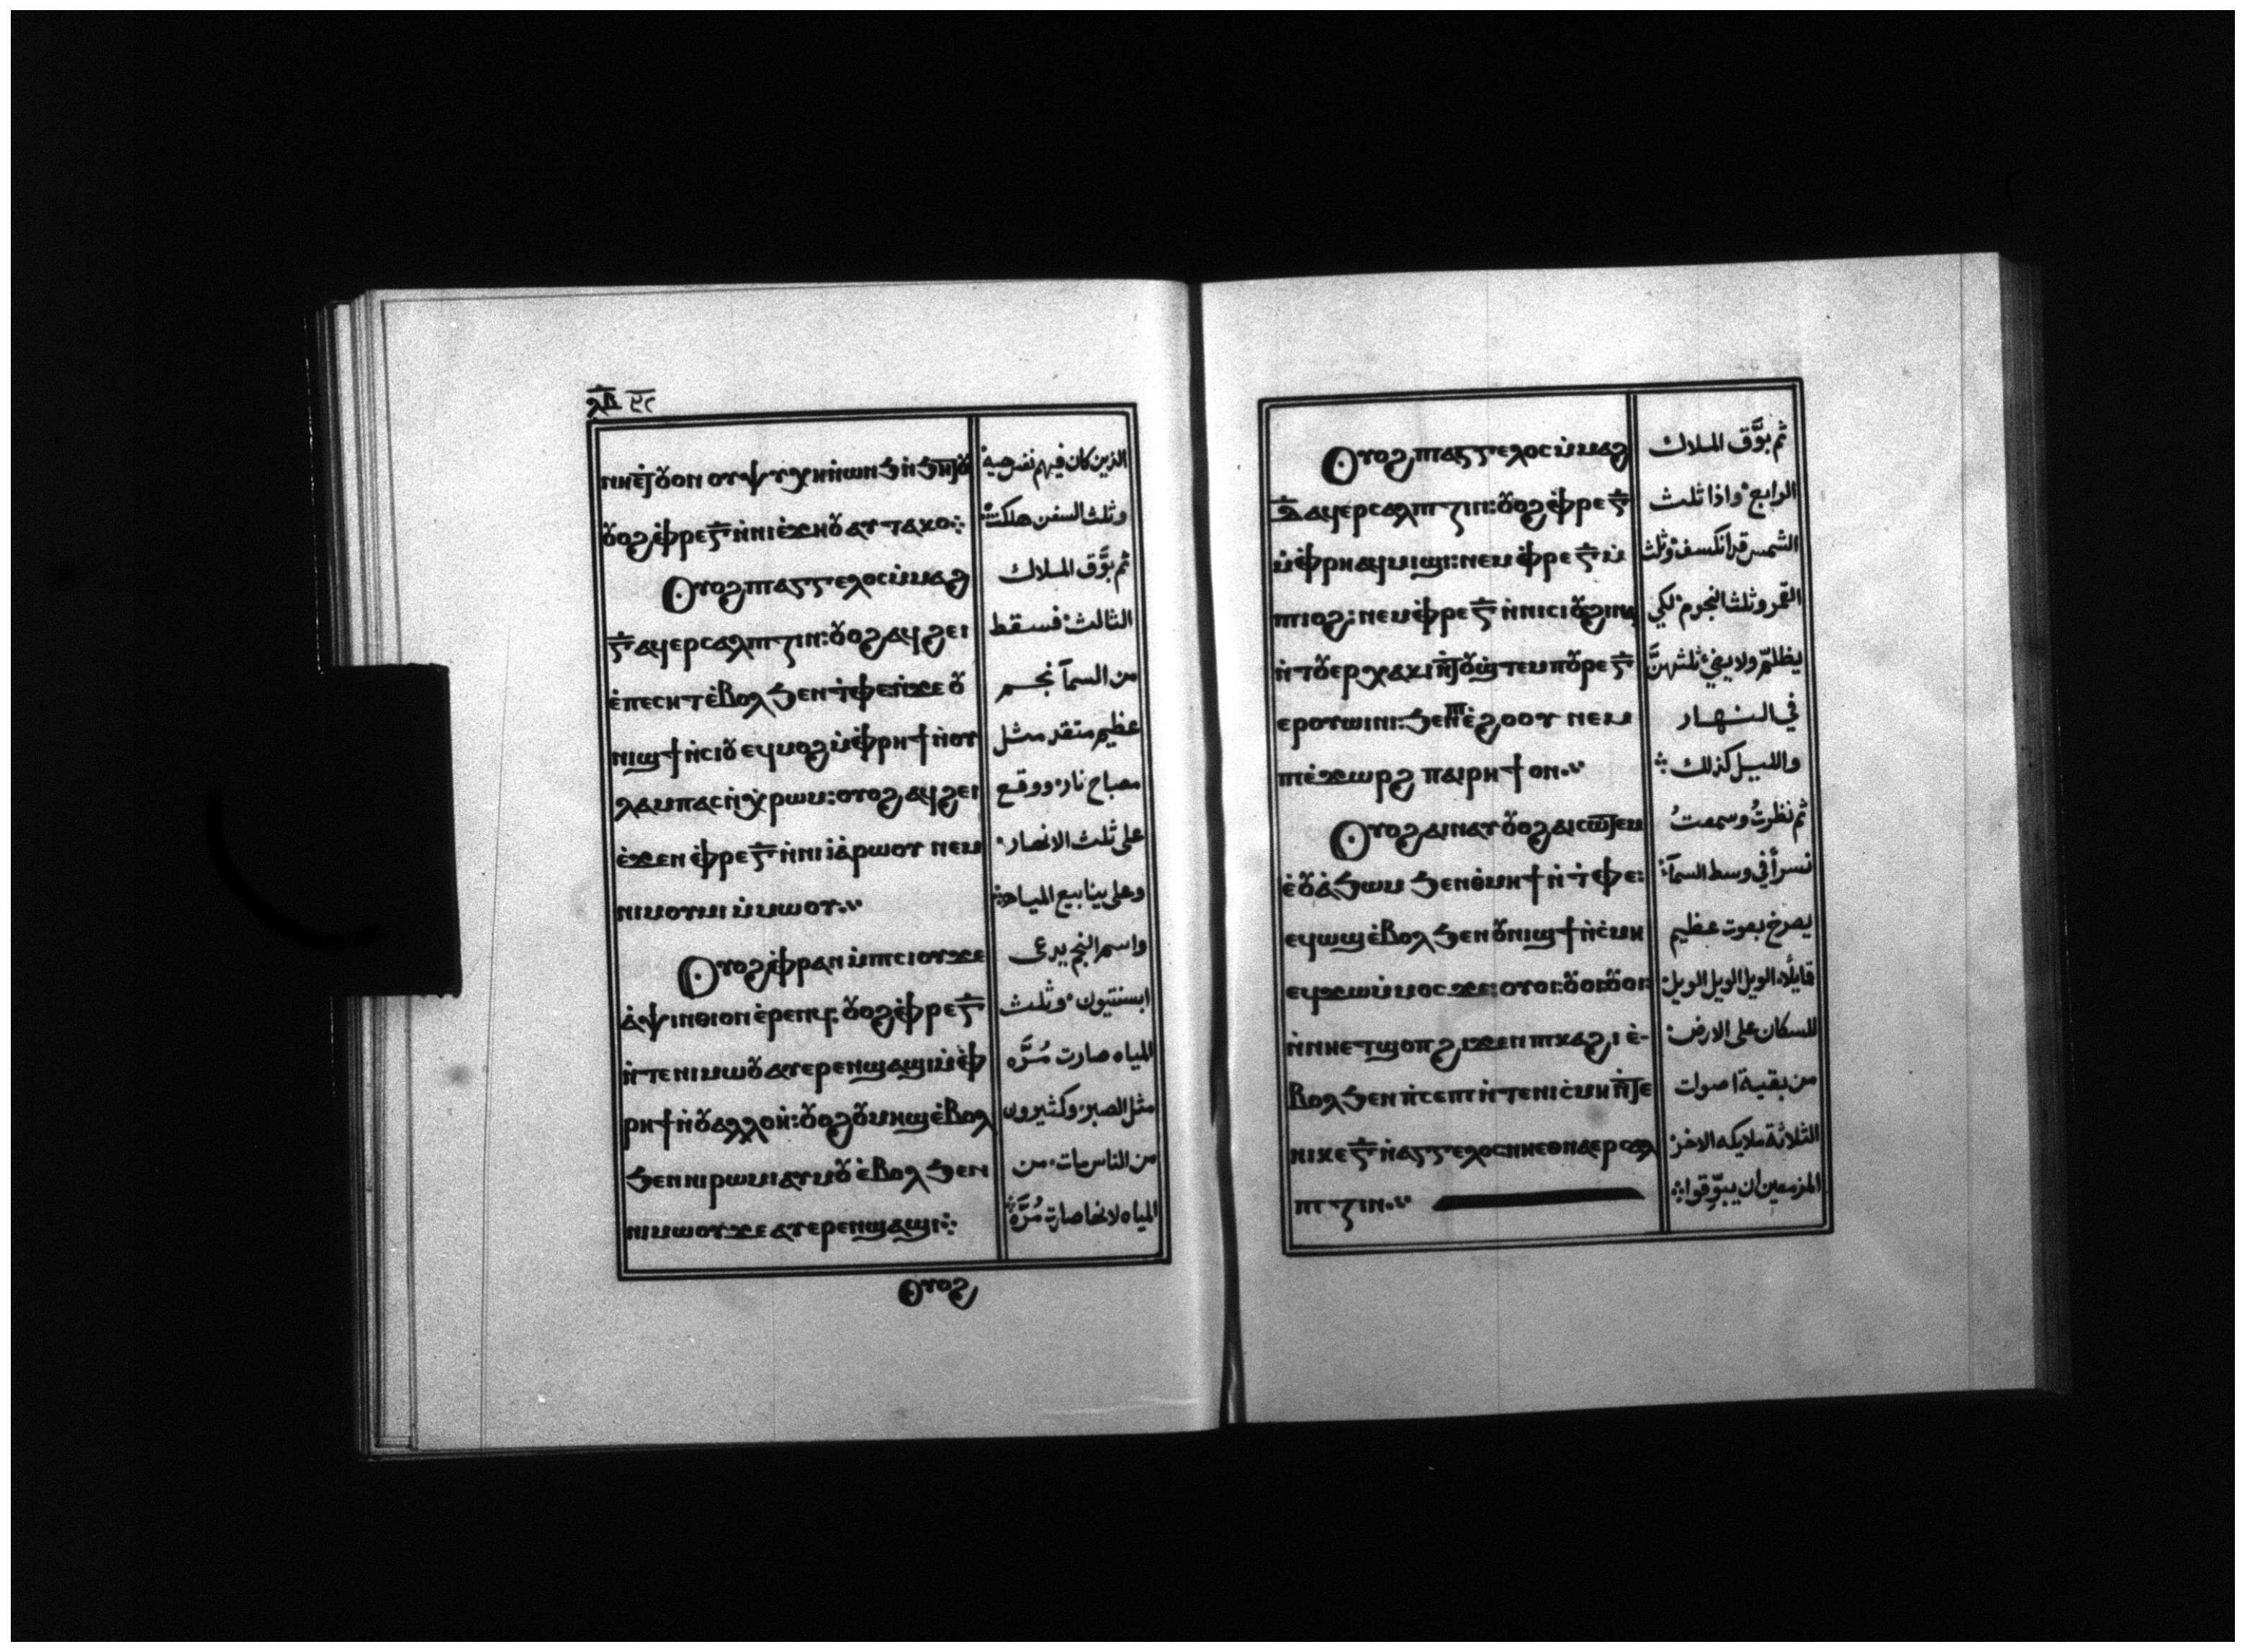 ⲗⲃ ٣٢
ⲛⲏⲉ̀ⲧⲟⲩⲟⲛ ⲟⲩⲯⲩⲭⲏ ⲛ̀ⲱⲛϧ ⲛ̀ϧⲏⲧⲟⲩ
ⲟⲩⲟϩ ⲫ̀ⲣⲉⲅ̅ ⲛ̀ⲛⲓⲉ̀ϫⲏⲟⲩ ⲁⲩⲧⲁⲕⲟ
Ⲟⲩⲟϩ ⲡⲁⲅⲅⲉⲗⲟⲥ ⲙ̀ⲙⲁϩ
ⲅ̅ ⲁϥⲉⲣⲥⲁⲗⲡⲓⲍⲓⲛ: ⲟⲩⲟϩ ⲁϥϩⲉⲓ
ⲉ̀ⲡⲉⲥⲏⲧ ⲉ̀ⲃⲟⲗϧⲉⲛ ⲧ̀ⲫⲉ: ⲛ̀ϫⲉ ⲟⲩ
ⲛⲓϣϯ ⲛ̀ⲥⲓⲟⲩ ⲉϥⲙⲟϩ ⲙ̀ⲫ̀ⲣⲏϯ ⲛ̀ⲟⲩ
ⲗⲁⲙⲡⲁⲥ ⲛ̀ⲭ̀ⲣⲱⲙ: ⲟⲩⲟϩ ⲁϥϩⲉⲓ
ⲉ̀ϫⲉⲛ ⲫ̀ⲣⲉⲅ̅ ⲛ̀ⲛⲓⲓⲁ̀ⲣⲱⲟⲩ ⲛⲉⲙ
ⲛⲓⲙⲟⲩⲙⲓ ⲙ̀ⲙⲱⲟⲩ
Ⲟⲩⲟϩ ⲫ̀ⲣⲁⲛ ⲙ̀ⲡⲥⲓⲟⲩ ϫⲉ
ⲁ̀ⲯⲓⲛⲑⲓⲟⲛ ⲉ̀ⲣⲉⲛϥ: ⲟⲩⲟϩ ⲫ̀ⲣⲉⲅ̅
ⲛ̀ⲧⲉⲛⲓⲙⲱⲟⲩ ⲁⲩⲉⲣⲉⲛϣⲁϣⲓ ⲙ̀ⲫ̀
ⲣⲏϯ ⲛ̀ⲟⲩⲁⲗⲗⲟⲏ̀: ⲟⲩⲟϩ ⲟⲩⲙⲏϣ ⲉ̀ⲃⲟⲗ
ϧⲉⲛ ⲛⲓⲣⲱⲙⲓ ⲁⲩⲙⲟⲩ ⲉ̀ⲃⲟⲗ ϧⲉⲛ
ⲛⲓⲙⲱⲟⲩ ϫⲉ ⲁⲩⲉⲣⲉⲛϣⲁϣⲓ
Ⲟⲩⲟϩ
الذين كان فيهم نفس حية
وثلث السفن هلكت
ثم بوَّق الملاك
الثالث فسقط
من السمآ نجم
عظيم متقد مثل
مصباح نار ووقع
على ثلث الانهار
وعلى ينابيع المياه
واسم النجم يدعى
ابسنتيون وثلث
المياه صارت مُرَّه
مثل الصبر وكثيرون
من الناس مات من
المياه لانها صارت مُرَّة
Ⲟⲩⲟϩ ⲡⲁⲅⲅⲉⲗⲟⲥ ⲙ̀ⲙⲁϩ
ⲇ̅ ⲁϥⲉⲣⲥⲁⲗⲡⲓⲍⲓⲛ: ⲟⲩⲟϩ ⲫ̀ⲣⲉⲅ̅
ⲙ̀ⲫ̀ⲣⲏ ⲁϥⲙⲓϣⲓ: ⲛⲉⲙ ⲫ̀ⲣⲉⲅ̅ ⲙ̀
ⲡⲓⲟϩ: ⲛⲉⲙ ⲫ̀ⲣⲉⲅ̅ ⲛ̀ⲛⲓⲥⲓⲟⲩ ϩⲓⲛⲁ
ⲛ̀ⲧⲟⲩⲉⲣⲭⲁⲕⲓ ⲛ̀ⲧⲟⲩϣ̀ⲧⲉⲙ ⲡⲟⲩⲣⲉⲅ̅
ⲉⲣⲟⲩⲱⲓⲛⲓ: ϧⲉⲛ ⲡⲓⲉ̀ϩⲟⲟⲩ ⲛⲉⲙ
ⲡⲓⲉ̀ϫⲱⲣϩ ⲡⲁⲓⲣⲏϯ ⲟⲛ
Ⲟⲩⲟϩ ⲁⲓⲛⲁⲩ ⲟⲩⲟϩ ⲁⲓⲥⲱⲧⲉⲙ
ⲉ̀ⲟⲩⲁ̀ϧⲱⲙ ϧⲉⲛ ⲑⲙⲏϯ ⲛ̀ⲧ̀ⲫⲉ:
ⲉϥⲱϣ ⲉ̀ⲃⲟⲗ ϧⲉⲛ ⲟⲩⲛⲓϣϯ ⲛ̀ⲥ̀ⲙⲏ
ⲉϥϫⲱ ⲙ̀ⲙⲟⲥ ϫⲉ: ⲟⲩⲟⲓ: ⲟⲩⲟⲓ: ⲟⲩⲟⲓ:
ⲛ̀ⲛⲏⲉⲧϣⲟⲡ ϩⲓϫⲉⲛ ⲡⲕⲁϩⲓ ⲉ̀-
ⲃⲟⲗ ϧⲉⲛ ⲡ̀ⲥⲉⲡⲓ ⲛ̀ⲧⲉⲛⲓⲥ̀ⲙⲏ ⲛ̀ⲧⲉ
ⲛⲓⲕⲉⲅ̅ ⲛ̀ⲁⲅⲅⲉⲗⲟⲥ ⲛⲏⲉⲑⲛⲁⲉⲣⲥⲁⲗ
ⲡⲓⲍⲓⲛ
ثم بوَّق الملاك
الرابع واذا ثلث
الشمس قد انكسف وثلث
القمر وثلث النجوم لكي
يظلم ولا يضيء ثلثهنَّ
في النهار
والليل كذلك
ثم نظرتُ وسمعتُ
نسراً في وسط السمآ
يصرخ بصوت عظيم
قايلًا الويل الويل الويل
للسكان على الارض
من بقية اصوات
الثلاثة ملايكه الاخر
المزمعين ان يبوّقوا